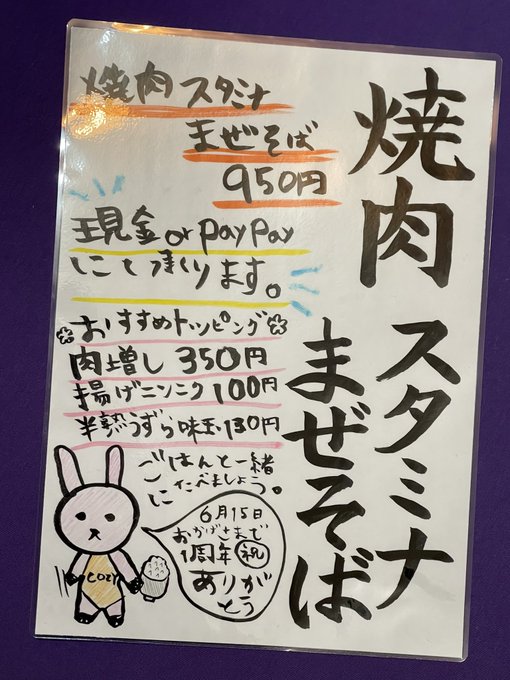 焼肉
スタミナ
まぜそば
焼肉スタミナ
まぜそば
950円
現金orPayPay
にて承ります。
おすすめトッピング
肉増し 350円
揚げニンニク 100円
半熟うずら味玉 130円
ごはんと一緒
にたべましょう。
6月15日
おかげさまで
1周年 祝
ありが
とう
COZY